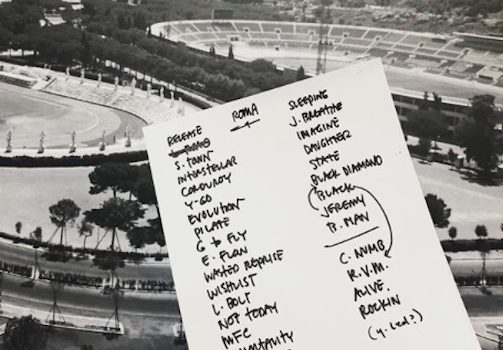 ROMA
RELEASE
S. TOWN
INTERSTELLAR
CORDUROY
Y-GO
EVOLUTION
PILATE
G to FLY
E. FLOW
WASTED REPRISE
WISHLIST
L. BOLT
NOT TODAY
MFC
SLEEPING
J. BREATHE
IMAGINE
DAUGHTER
STATE
BLACK DIAMOND
BLACK
JEREMY
B. MAN
C. NUMB
R.V.M.
ALIVE.
ROCKIN
(Y. Led?)